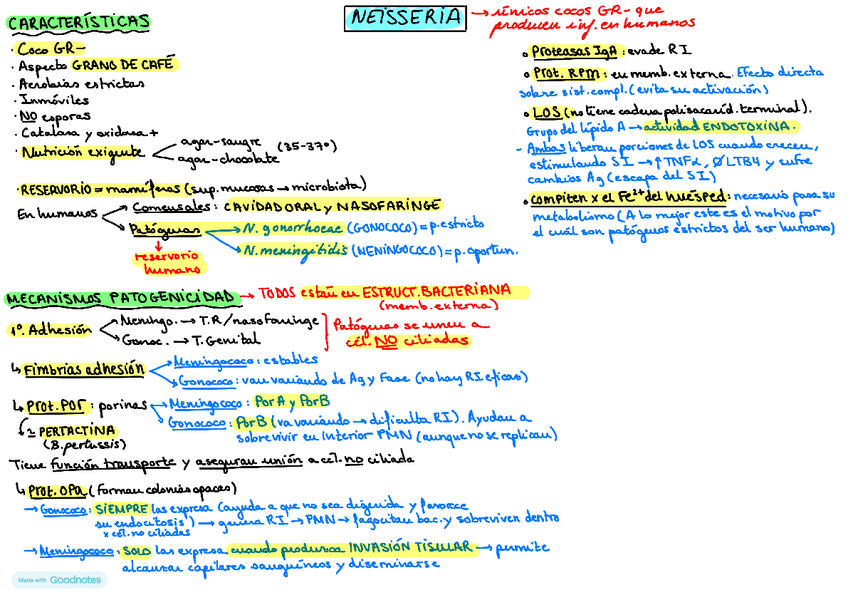 NEISSERIA → únicos cocos GR- que
producen inf. en humanos
CARACTERÍSTICAS
· Coco GR-
· Aspecto GRANO DE CAFÉ
· Aerobias estrictas
· Inmóviles
· NO esporas
· Catalasa y oxidasa +
· Nutrición exigente
agar-sangre
agar-chocolate
(35-37º)
· RESERVORIO = mamíferas (sup. mucosas → microbiota)
En humanos
Comensales: CAVIDAD ORAL y NASOFARINGE
Patógenas
→ N. gonorrhoeae (GONOCOCO) = p. estricto
→ N. meningitidis (MENINGOCOCO) = p. oportun.
reservorio
humano
MECANISMOS PATOGENICIDAD → TODOS están en ESTRUCT. BACTERIANA
(memb. externa)
1º. Adhesión
Meningo. → T.R/nasofaringe
Gonoc. → T. Genital
Patógenas se unen a
cél. NO ciliadas
↳ Fimbrias adhesión
Meningococo: estables
Gonococo: van variando de Ag y Fase (no hay RI eficaz)
↳ Prot. POR: porinas
→ Meningococo: PorA y PorB
Gonococo: PorB (va variando → dificulta RI). Ayudan a
sobrevivir en interior PMN (aunque no se replican)
≃ PERTACTINA
(B. pertussis)
Tiene función transporte y aseguran unión a cél. no ciliada
↳ Prot. OPA (forman colonias opacas)
→ Gonococo: SIEMPRE las expresa (ayuda a que no sea digerida y favorece
su endocitosis) → genera RI → PMN → fagocitan bac. y sobreviven dentro
x cél. no ciliadas
→ Meningococo: SOLO las expresa cuando produzca INVASIÓN TISULAR → permite
alcanzar capilares sanguíneos y diseminarse
○ Proteasas IgA: evade RI
○ Prot. RPM: en memb. externa. Efecto directa
sobre sist. compl. (evita su activación)
○ LOS (no tiene cadena polisacárid. terminal).
Grupo del lípido A → actividad ENDOTOXINA.
- Ambas liberan porciones de LOS cuando crecen,
estimulando SI → ↑TNFα, ∅ LTB4 y sufre
cambios Ag (escapa del SI)
○ Compiten x el Fe³⁺ del huésped: necesario para su
metabolismo (A lo mejor este es el motivo por
el cuál son patógenas estrictos del ser humano)
Made with Goodnotes